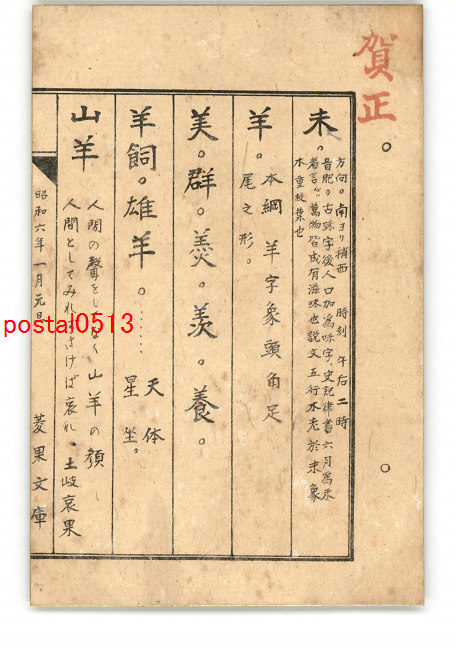 賀正
未。
方向。南ヨリ稍西 時刻 午后二時
音肥。古味字後人口加為味字、史記律書 六月為未
者言 萬物皆成有滋味也説文 五行木老於未象
木重枝葉也
羊。
本綱 羊字象頭角足
尾之形。
美。群。羨。羨。養。
羊飼。雄羊。……
天体
星坐。
山羊
人間の聲をし なく 山羊の顔
人間としてみれ さけば哀れ、土岐哀果
昭和六年一月元旦
菱果文庫
postal0513